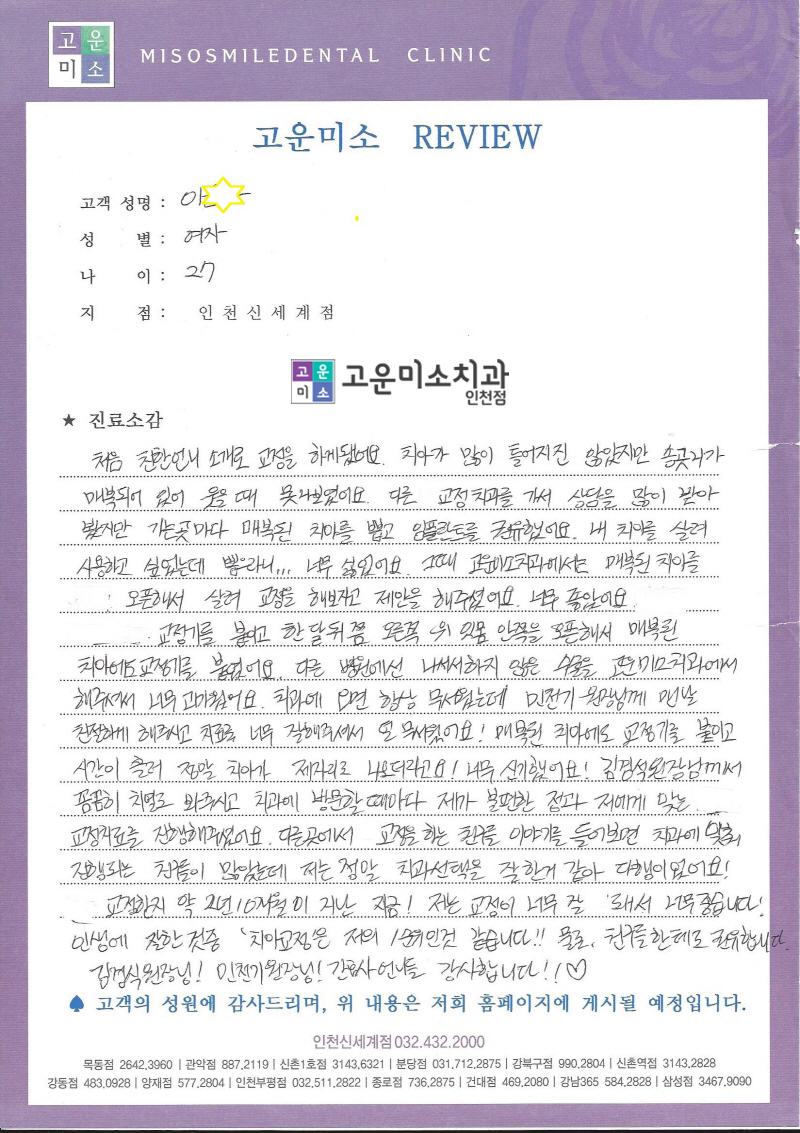 고운
미소
MISOSMILEDENTAL CLINIC
고운미소 REVIEW
고객 성명 : 이
성 별 : 여자
나 이 : 27
지 점 : 인천신세계점
고운
미소
고운미소치과
인천점
★ 진료소감
처음 친한언니 소개로 교정을 하게됐어요. 치아가 많이 틀어지진 않았지만 송곳니가
매복되어 있어 웃을 때 못나보였어요. 다른 교정치과를 가서 상담을 많이 받아
봤지만 가는곳마다 매복된 치아를 뽑고 임플란트를 권유했어요. 내 치아를 살려
사용하고 싶었는데 뽑으라니... 너무 싫었어요. 그때 고운미소치과에서는 매복된 치아를
오픈해서 살려 교정을 해보자고 제안을 해주셨어요. 너무 좋았어요.
교정기를 붙이고 한달뒤 쯤 오른쪽 위 잇몸 안쪽을 오픈해서 매복된
치아에도 교정기를 붙였어요. 다른 병원에선 나서서하지 않은 수술을 고운미소치과에서
해주셔서 너무 고마웠어요. 치과에 오면 항상 무서웠는데 민전기 원장님께 맨날
친절하게 해주시고 치료도 너무 잘해주셔서 안 무서웠어요! 매복된 치아에도 교정기를 붙이고
시간이 흘러 정말 치아가 제자리로 나오더라고요! 너무 신기했어요! 김경석원장님께서
꼼꼼히 치열도 봐주시고 치과에 방문할 때마다 제가 불편한 점과 저에게 맞는
교정치료를 진행해주셨어요. 다른곳에서 교정을 하는 친구들 이야기를 들어보면 치과에
진행되는 친구들이 많았는데 저는 정말 치과선택을 잘 한거 같아 다행이었어요!
교정한지 약 2년 10개월이 지난 지금! 저는 교정이 너무 잘 돼서 너무 좋습니다!
인생에 잘한 것중 '치아교정'은 저의 1순위인것 같습니다!! 물론, 친구들한테도 권유합니다.
김경식원장님! 민전기원장님! 간호사 언니들 감사합니다!! ♡
♠ 고객의 성원에 감사드리며, 위 내용은 저희 홈페이지에 게시될 예정입니다.
인천신세계점 032.432.2000
목동점 2642,3960 | 관악점 887,2119 | 신촌1호점 3143,6321 | 분당점 031,712,2875 | 강북구점 990,2804 | 신촌역점 3143,2828
강동점 483,0928 | 양재점 577,2804 | 인천부평점 032,511,2822 | 종로점 736,2875 | 건대점 469,2080 | 강남365 584,2828 | 삼성점 3467,9090